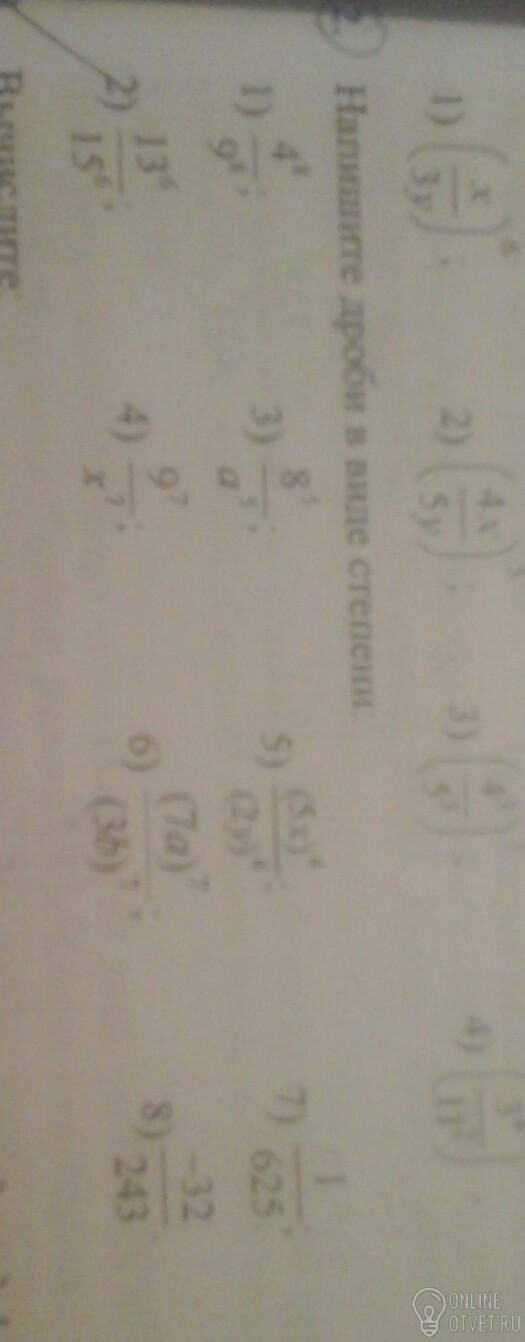 1) (x/3y)⁶; 2) (4x/5y)³; 3) (4²/5³); 4) (3⁴/11²)
2. Напишите дроби в виде степени:
1) 4⁸/9⁸; 3) 8⁵/a⁵; 5) (5x)⁶/(2y)⁶; 7) 1/625;
2) 13⁶/15⁶; 4) 9⁷/x⁷; 6) (7a)⁷/(3b)⁷; 8) -32/243
Вычислите:
ONLINE
OTVET.RU